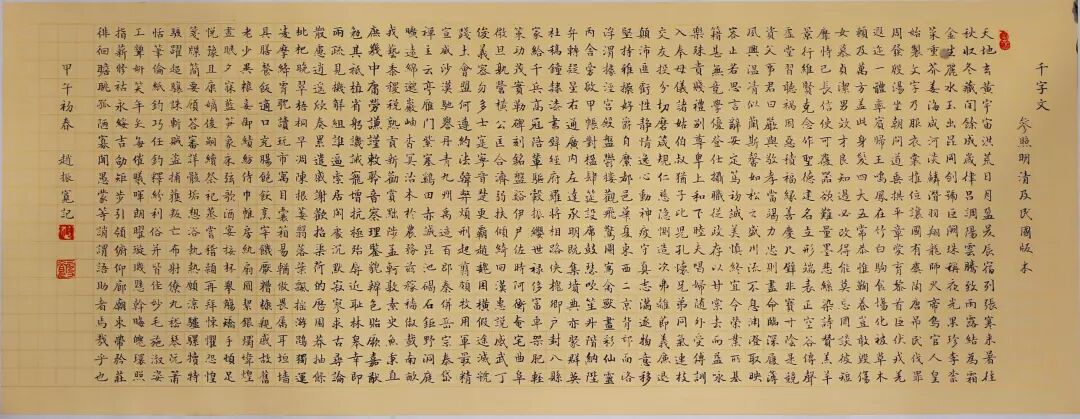 千字文
參照明清及民國版本
天地玄黃宇宙洪荒日月盈昃辰宿列張寒來暑往
秋收冬藏閏餘成歲律呂調陽雲騰致雨露結為霜
金生麗水玉出崑岡劍號巨闕珠稱夜光果珍李柰
菜重芥薑海鹹河淡鱗潛羽翔龍師火帝鳥官人皇
始製文字乃服衣裳推位讓國有虞陶唐弔民伐罪
周發殷湯坐朝問道垂拱平章愛育黎首臣伏戎羌
遐邇一體率賓歸王鳴鳳在竹白駒食場化被草木
賴及萬方蓋此身髮四大五常恭惟鞠養豈敢毀傷
女慕貞潔男效才良知過必改得能莫忘罔談彼短
靡恃己長信使可覆器欲難量墨悲絲染詩讚羔羊
景行維賢克念作聖德建名立形端表正空谷傳聲
虛堂習聽禍因惡積福緣善慶尺璧非寶寸陰是競
資父事君曰嚴與敬孝當竭力忠則盡命臨深履薄
夙興溫凊似蘭斯馨如松之盛川流不息淵澄取映
容止若思言辭安定篤初誠美慎終宜令榮業所基
籍甚無竟學優登仕攝職從政存以甘棠去而益詠
樂殊貴賤禮別尊卑上和下睦夫唱婦隨外受傅訓
入奉母儀諸姑伯叔猶子比兒孔懷兄弟同氣連枝
交友投分切磨箴規仁慈隱惻造次弗離節義廉退
顛沛匪虧性靜情逸心動神疲守真志滿逐物意移
堅持雅操好爵自縻都邑華夏東西二京背邙面洛
浮渭據涇宮殿盤鬱樓觀飛驚圖寫禽獸畫彩仙靈
丙舍傍啟甲帳對楹肆筵設席鼓瑟吹笙升階納陛
弁轉疑星右通廣內左達承明既集墳典亦聚群英
杜稿鍾隸漆書壁經府羅將相路俠槐卿戶封八縣
家給千兵高冠陪輦驅轂振纓世祿侈富車駕肥輕
策功茂實勒碑刻銘磻溪伊尹佐時阿衡奄宅曲阜
微旦孰營桓公匡合濟弱扶傾綺迴漢惠說感武丁
俊乂密勿多士寔寧晉楚更霸趙魏困橫假途滅虢
踐土會盟何遵約法韓弊煩刑起翦頗牧用軍最精
宣威沙漠馳譽丹青九州禹跡百郡秦併嶽宗泰岱
禪主云亭雁門紫塞雞田赤誠昆池碣石鉅野洞庭
曠遠綿邈巖岫杳冥治本於農務茲稼穡俶載南畝
我藝黍稷稅熟貢新勸賞黜陟孟軻敦素史魚秉直
庶幾中庸勞謙謹敕聆音察理鑒貌辨色貽厥嘉猷
勉其祗植省躬譏誡寵增抗極殆辱近恥林皋幸即
兩疏見機解組誰逼索居閒處沉默寂寥求古尋論
散慮逍遙欣奏累遣慼謝歡招渠荷的歷園莽抽條
枇杷晚翠梧桐早凋陳根委翳落葉飄搖遊鵾獨運
凌摩絳霄耽讀玩市寓目囊箱易輶攸畏屬耳垣牆
具膳餐飯適口充腸飽飫烹宰飢厭糟糠親戚故舊
老少異糧妾御績紡侍巾帷房紈扇圓潔銀燭煒煌
晝眠夕寐藍筍象床弦歌酒宴接杯舉觴矯手頓足
悅豫且康嫡後嗣續祭祀蒸嘗稽顙再拜悚懼恐惶
箋牒簡要顧答審詳骸垢想浴執熱願涼驢騾犢特
駭躍超驤誅斬賊盜捕獲叛亡布射僚丸嵇琴阮嘯
恬筆倫紙鈞巧任釣釋紛利俗並皆佳妙毛施淑姿
工顰妍笑年矢每催曦暉朗曜璇璣懸斡晦魄環照
指薪修祜永綏吉劭矩步引領俯仰廊廟束帶矜莊
徘徊瞻眺孤陋寡聞愚蒙等誚謂語助者焉哉乎也
甲午初春 趙振寬記